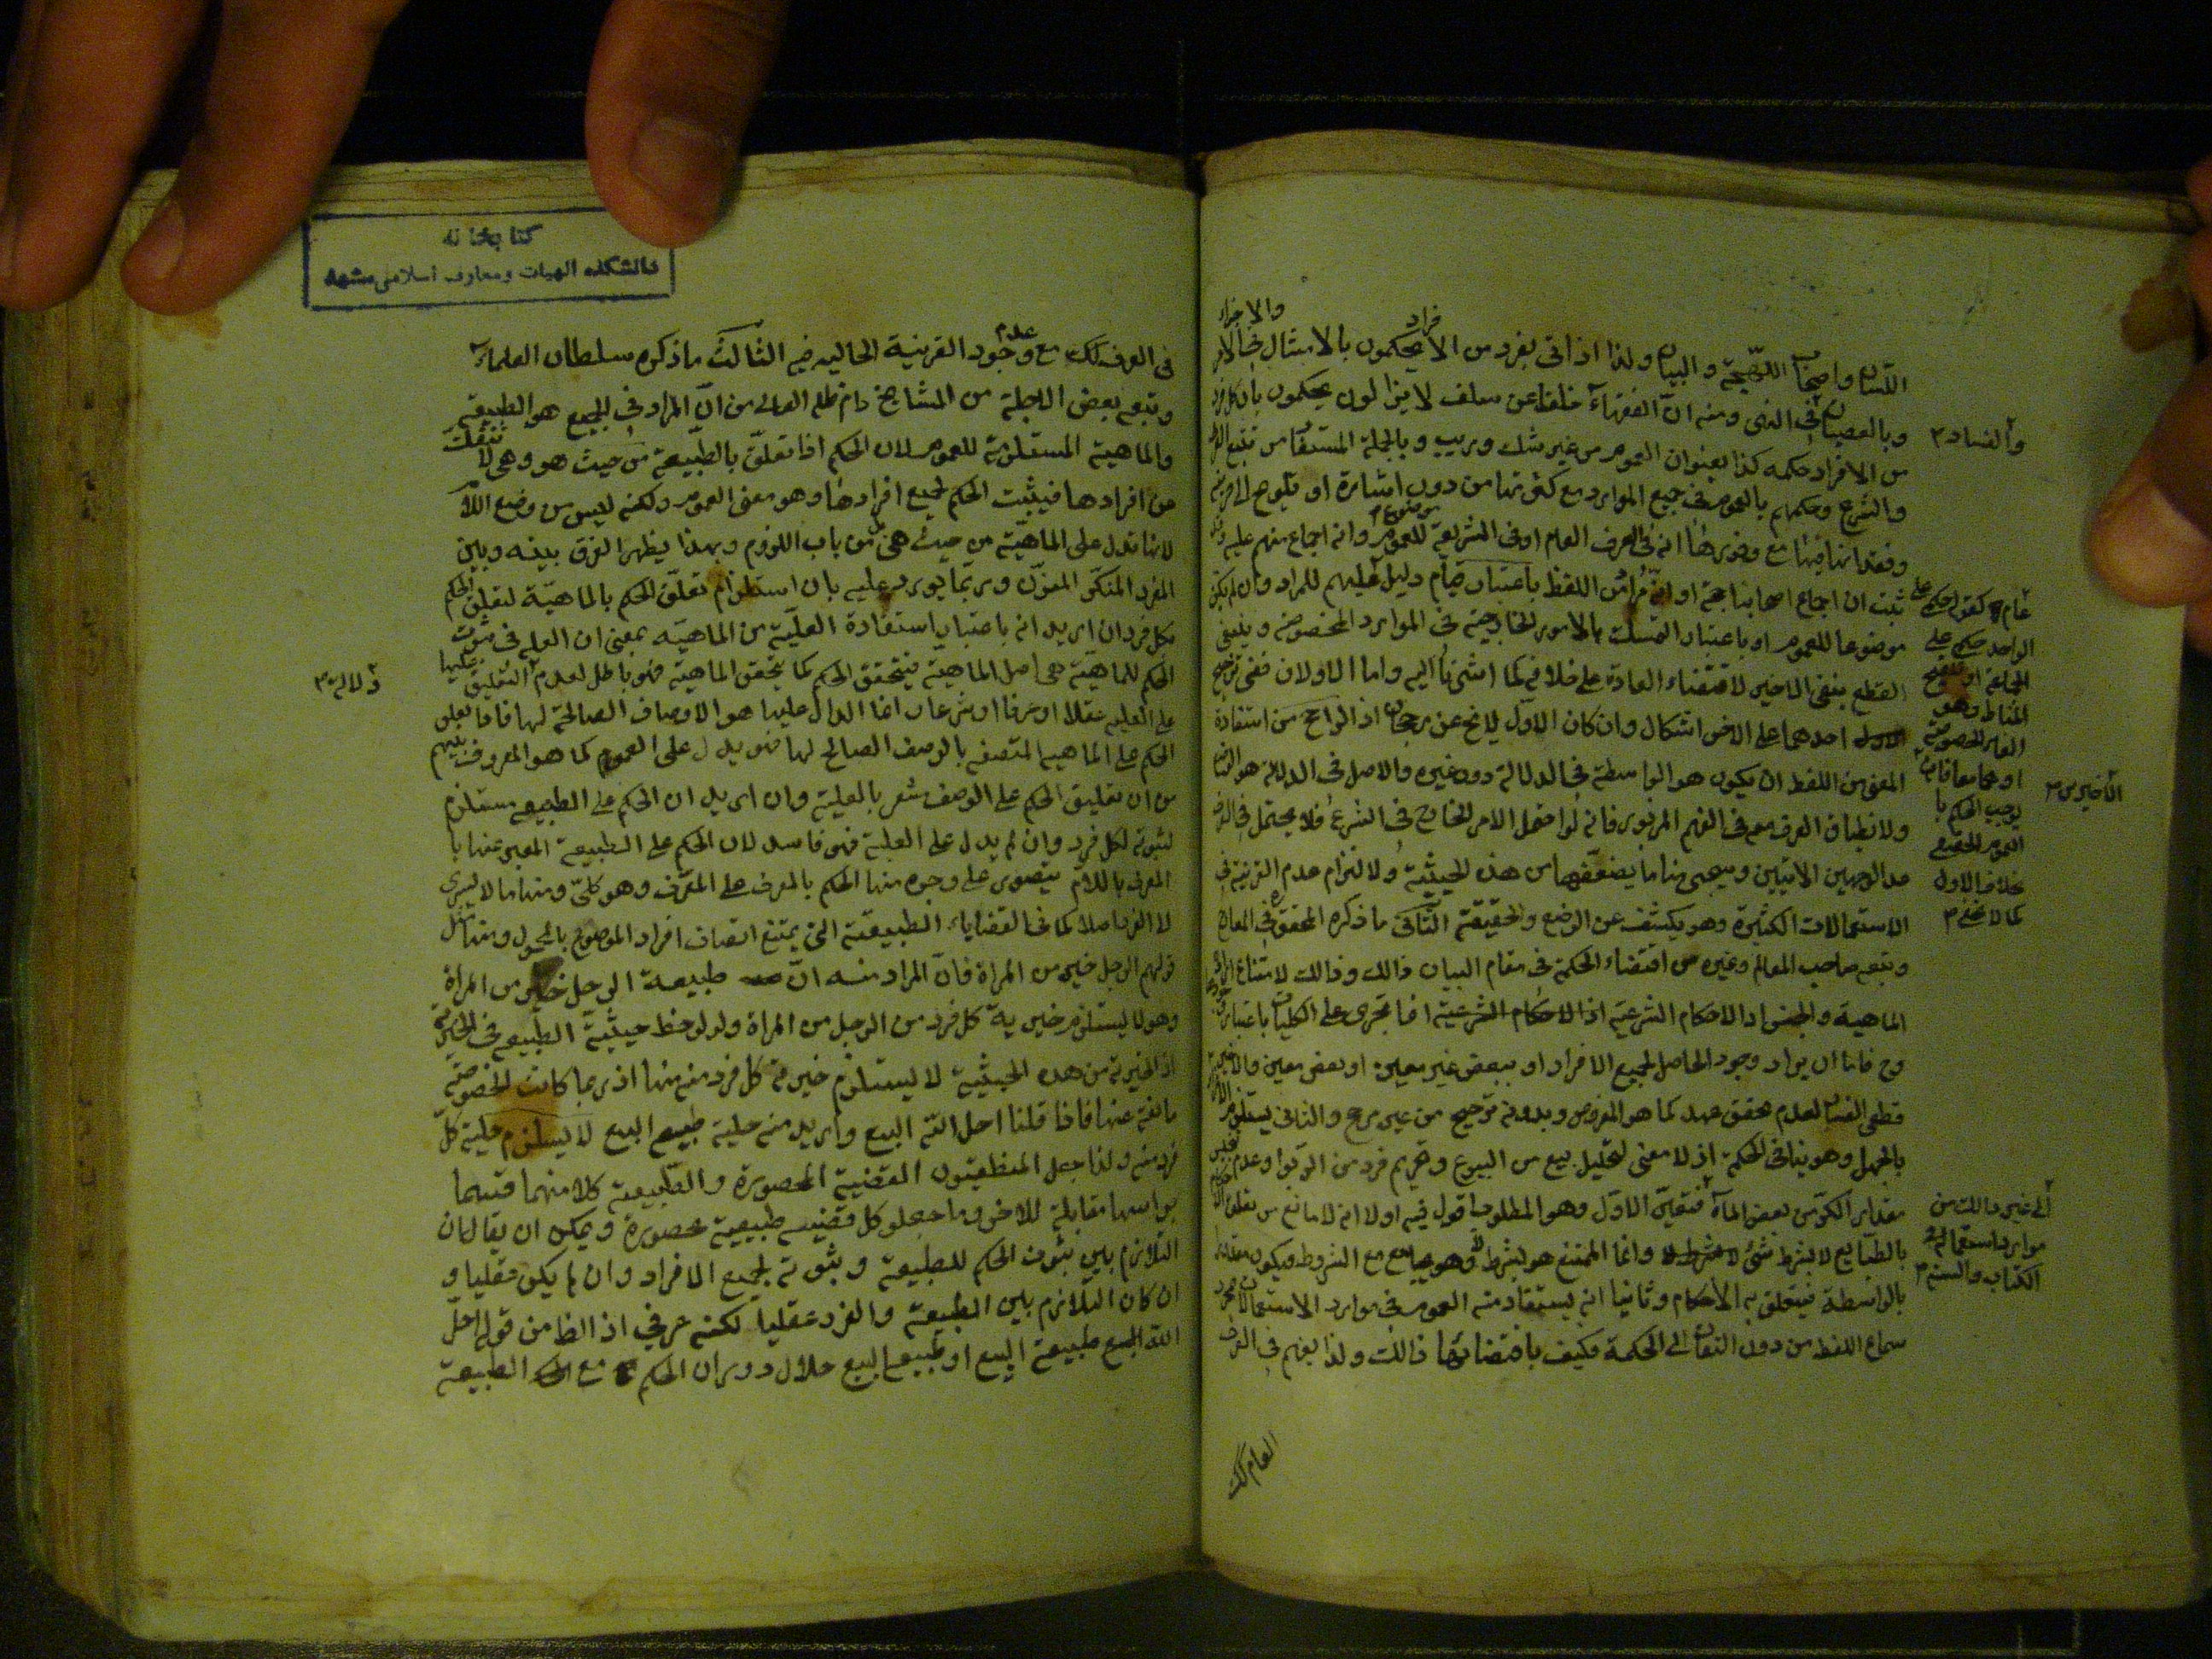 اللسان واصحاب اللهجة و البيان ولذا اذا اتى بفرد من الافراد يحكمون بالامتثال في الامر والاجزاء
وبالعصيان في النهى ومنه ان الفقهاء خلفا عن سلف لا يزالون يحكمون بان كل فرد
والفساد
من الافراد حكمه كذا بعنوان العموم من غير شك وريب وبالجملة المستفاد من تتبع
والشرع وحكمهم بالعموم في جميع الموارد مع كثرتها من دون اشارة او تلويح الى قرينة
وفقدانها فيها مع وفورها انه في العرف العام او في الشريعة موضوع للعموم وانه اجماع منهم عليه
ثبت ان اجماع اصحابنا حجة او انه مراد من اللفظ باعتبار قيام دليل عليهم للمراد وان لم يكن
موضوعا للعموم او باعتبار التمسك بالامور الخارجة في الموارد المخصوصة وينبغي
القطع بنفى الاخير لاقتضاء العادة على خلافه كما اشرنا اليه واما الاولان ففى ترجيح
احدهما على الاخر اشكال وان كان الاول لا يخ عن رجحان اذ الراجح من استفادة
المعنى من اللفظ ان يكون هو الواسطة في الدلالة دون غيره والاصل في الدلالة هو
ولانطباق العرف معه في الفهم المزبور فانه لو احتمل الامر الخارج في الشرع فلا يحتمل في العرف
عد الوجهين الاتيين وسيجيئ منا ما يضعفهما من هذه الحيثية ولالتزام عدم القرينة في
الاستعمالات الكثيرة وهو يكشف عن الوضع والحقيقة الثانى ما ذكره المحقق في المعارج
وتبعه صاحب المعالم وغيره من اقتضاء الحكمة في مقام البيان ذلك وذلك لامتناع ارادة
الماهية والجنس اذ الاحكام الشرعية انما تجرى على الكليات باعتبار
وح فاما ان يراد وجود الحاصل لجميع الافراد او ببعض غير معين او بعض معين والاخير
قطعى الفساد لعدم تحقق عهد كما هو المفروض وبدونه ترجيح من غير مرجح والثانى يستلزم
بالجهل وهو ينافى الحكمة اذ لا معنى لتحليل بيع من البيوع وتحريم فرد من الربوا وعدم تنجيس
مقدار الكر من بعض الماء فتعين الاول وهو المطلوب اقول فيه اولا انه لا مانع من تعلق
بالطبايع لا بشرط شئ وانما الممتنع هو بشرط لا وهو يجامع مع الشروط فيكون
بالواسطة فيتعلق به الاحكام وثانيا انه يستفاد منه العموم في موارد الاستعمالات بمجرد
سماع اللفظ من دون التفات الى الحكمة فكيف باقتضائها ذلك ولذا يفهم في العرف
العام كك
عام كقوله حكمى على
الواحد حكمى على
الجماعة او
المناط وهو
العام
يوجب الحكم با
العموم
بخلاف الاول
كما لا يخفى
الاخير من
الى غير ذلك من
موارد استعماله
الكتاب والسنة
كتابخانه
دانشكده الهيات ومعارف اسلامى مشهد
فى العرف كك مع عدم وجود القرينة الحاليه فيه الثالث ما ذكره سلطان العلماء
وتبعه بعض الاجلة من المشايخ دام ظله العالى من ان المراد في الجميع هو الطبيعة
والماهية المستلزمة للعموم لان الحكم اذا تعلق بالطبيعة من حيث هو وهى لا تنفك
من افرادها فيثبت الحكم لجميع افرادها وهو معنى العموم ولكنه ليس من وضع اللام
لانها تدل على الماهية من حيث هى بل من باب اللزوم وبهذا يظهر الفرق بينه وبين
المفرد المنكر المنون وربما يورد عليه بان استلزام تعلق الحكم بالماهية لتعلق الحكم
بكل فرد ان اريد انه باعتبار استفادة العلية من الماهية بمعنى ان العلة في ثبوت
الحكم للماهية هى اصل الماهية فيتحقق الحكم كما يتحقق الماهية فهو باطل لعدم دلالة التعليق عليها
دلالة
على العلية عقلا او عرفا او شرعا انما الدال عليها هو الاوصاف الصالحة لها فاذا تعلق
الحكم على الماهية المتصفه بالوصف الصالح لها فهو يدل على العموم كما هو المعروف بينهم
من ان تعليق الحكم على الوصف مشعر بالعلية وان اريد ان الحكم على الطبيعة مستلزم
لثبوته لكل فرد وان لم يدل على العلية فهو فاسد لان الحكم على الطبيعة المعبر عنها با
المعرف باللام يتصور على وجوه منها الحكم بالمعرف على المعرف وهو كلى ومنها ما لا يسرى
لا الفرد اصلا كما في القضاياء الطبيعية التى يمتنع اتصاف افراد الموضوع بالمحمول ومنها
قولهم الرجل خير من المراة فان المراد منه ان طبيعة الرجل خير من المراة
وهو لا يستلزم خيرية كل فرد من الرجل من المراة ولو لوحظ حيثية الطبيعة في
اذ الخيرية من هذه الحيثية لا يستلزم خيرية كل فرد منه منها اذ ربما كانت الخصوصية
مانعة عنها فاذا قلنا احل الله البيع واريد منه حلية طبيعة البيع لا يستلزم حلية كل
فرد منه ولذا جعل المنطقيون القضية المحصورة والطبيعية كلا منهما قسما
براسها مقابلة للاخر وما جعلو كل قضية طبيعية محصورة ويمكن ان يقال ان
التلازم بين ثبوت الحكم للطبيعة وثبوته لجميع الافراد وان لم يكن عقليا و
ان كان التلازم بين الطبيعة والفرد عقليا لكنه عرفي اذ الظ من قوله احل
الله البيع طبيعة البيع او طبيعة البيع حلال دوران الحكم مع الطبيعة